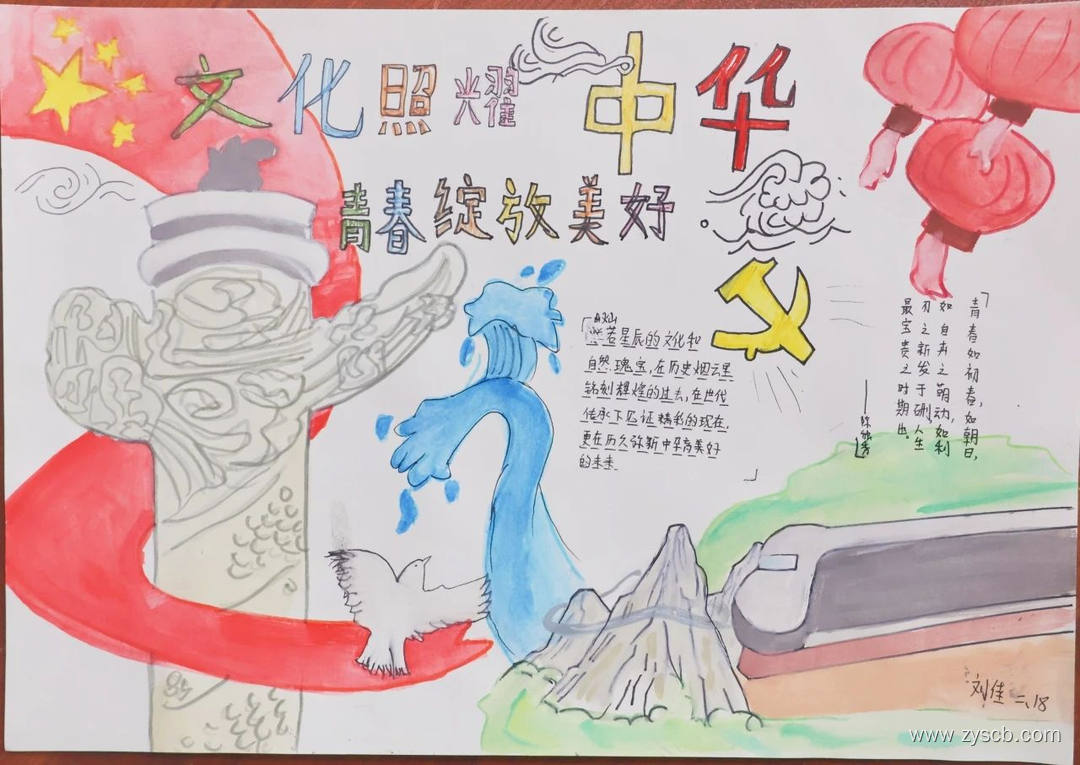 文化照耀中华
青春绽放美好
「灿若星辰的文化和
自然瑰宝,在历史烟云里
铭刻辉煌的过去,在世代
传承下见证精彩的现在,
更在历久弥新中孕育美好
的未来.」
「青春如初春,如朝日,
如百卉之萌动,如利
刃之新发于硎,人生
最宝贵之时期也。
——陈独秀」
刘佳 二、18
www.zyscb.com